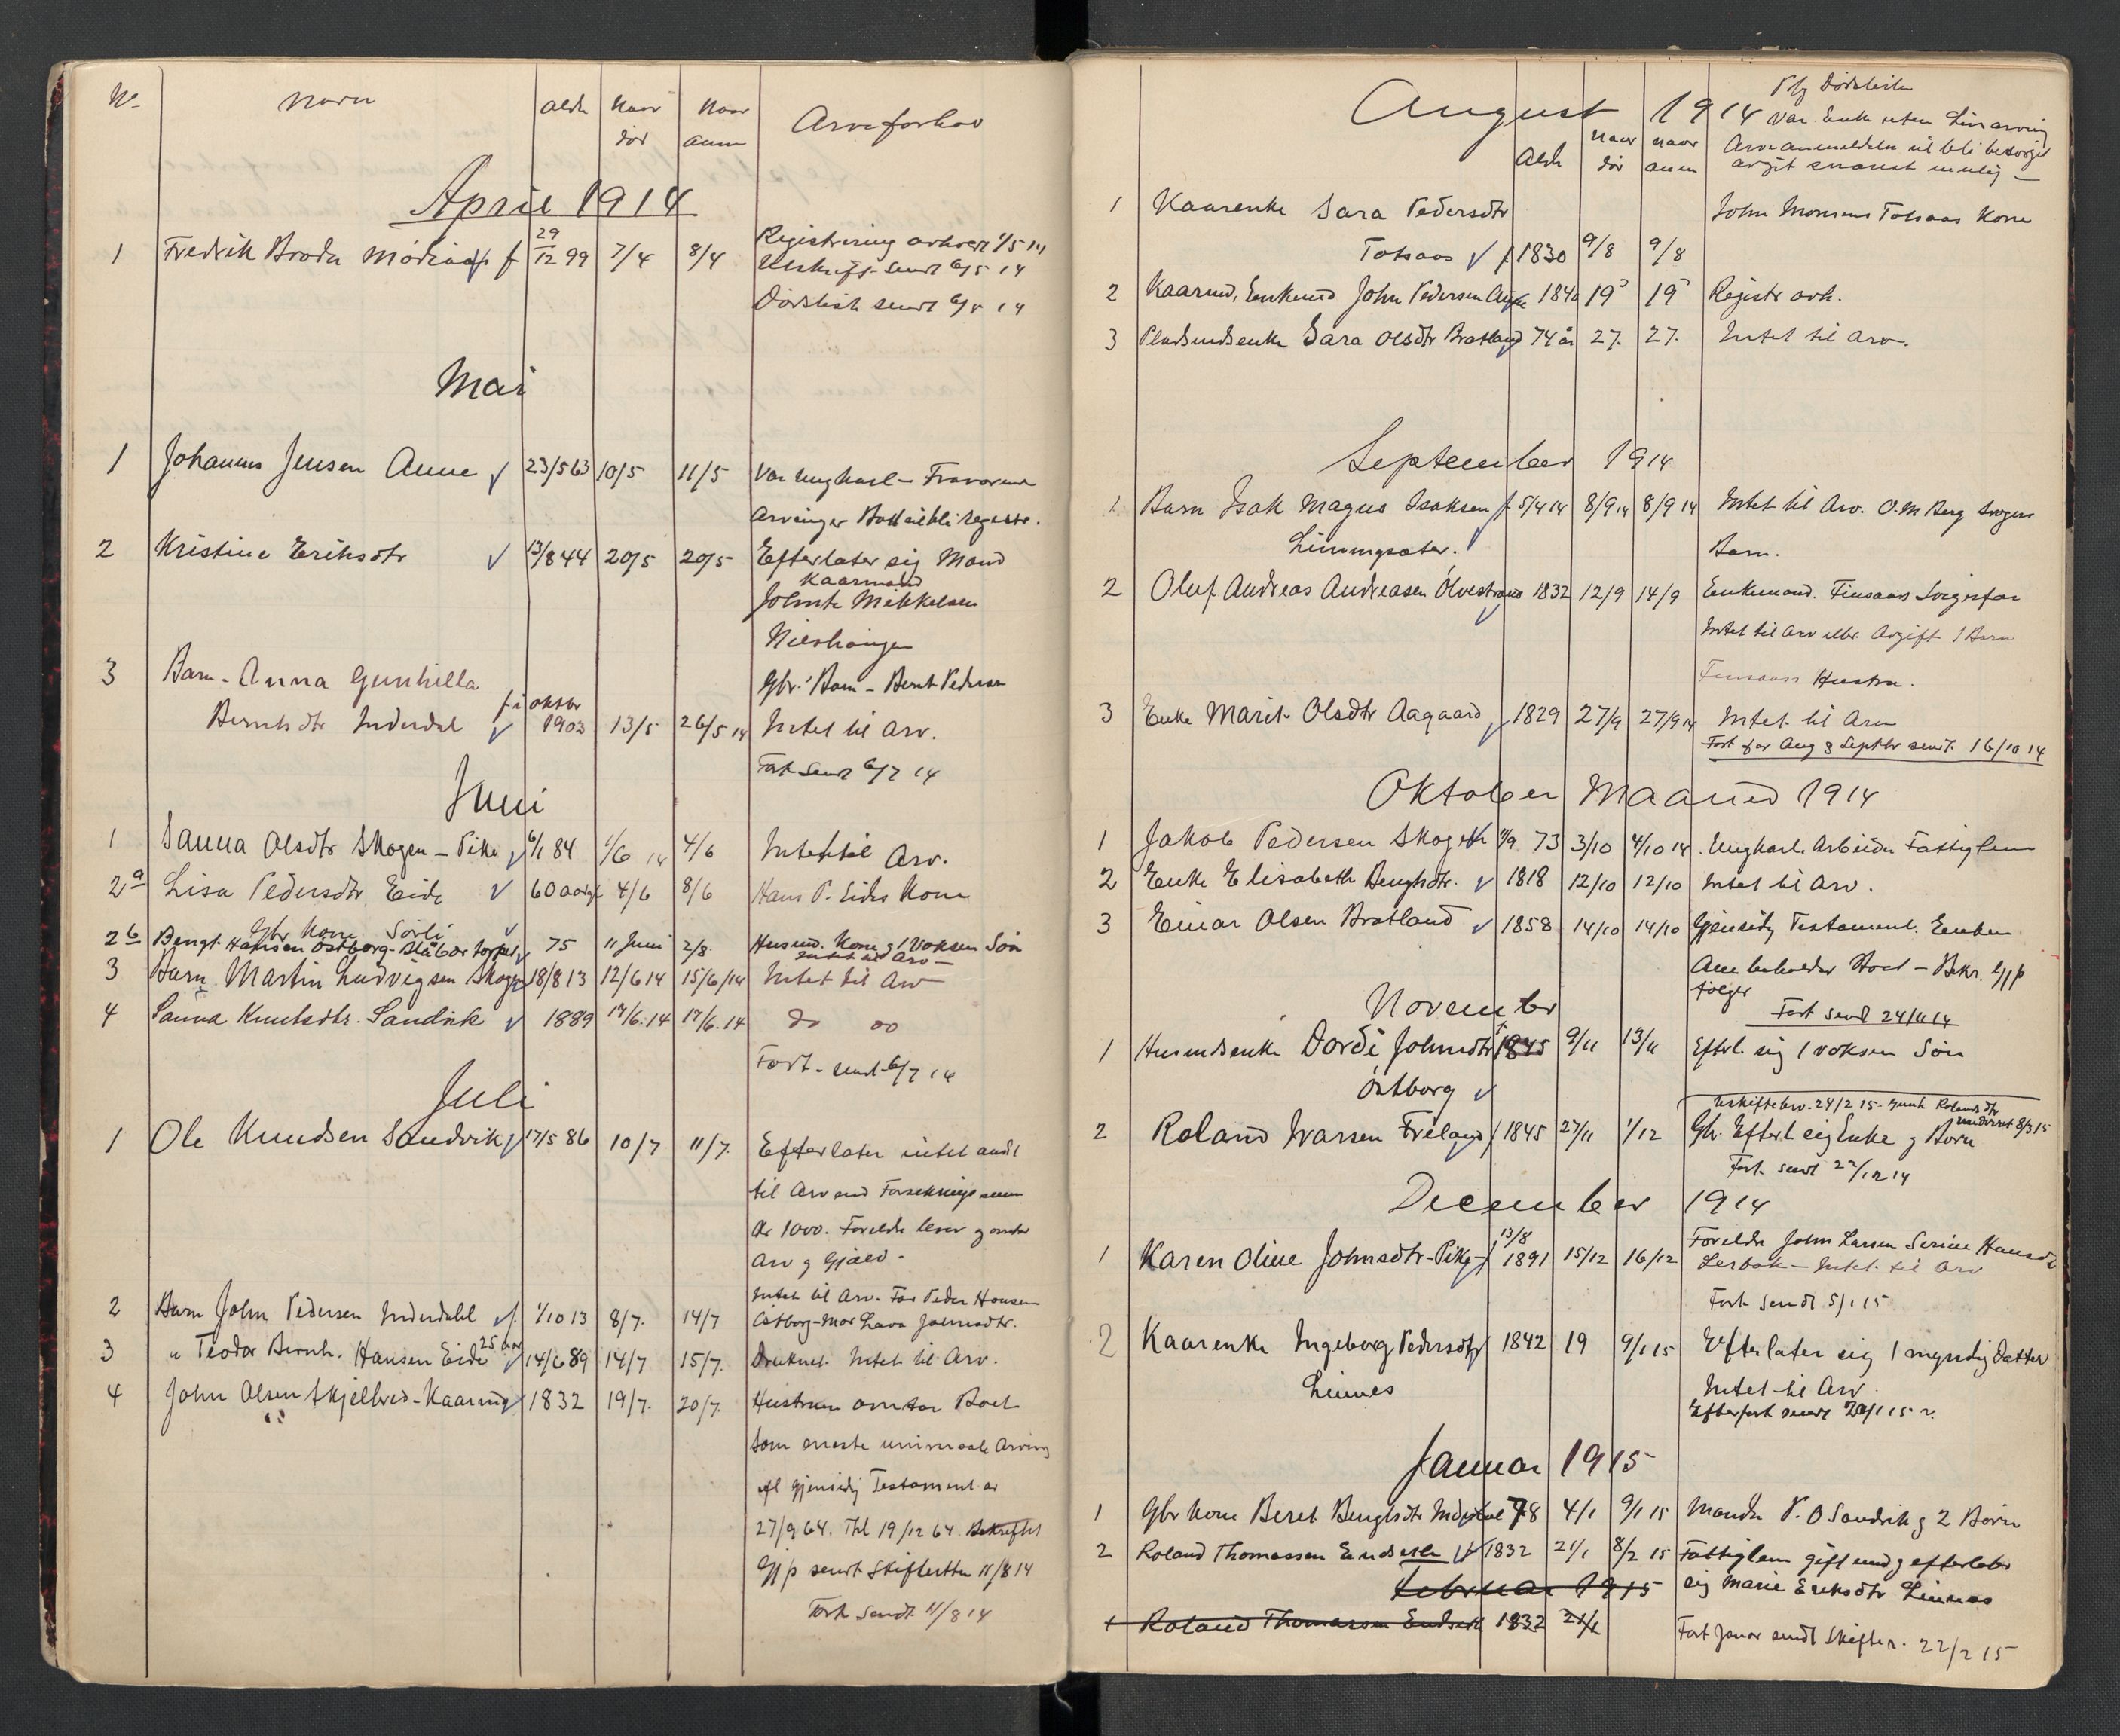 No Navn Alder Naar død Naar anm Arveforhov
April 1914
1 Fredrik Broder f 29/12 99 7/4 8/4 Registrering avholt 1/5 14
Utskrift sendt 6/5 14
Dødsliste sendt 6/5 14
Mai
1 Johannes Jensen Aune 23/5 63 10/5 11/5 Var Ungkarl - Fraværende
Arvinger Boet vil bli registr.
2 Kristine Eriksdtr 13/8 44 20/5 20/5 Efterlater sig Mand
Kaarmand
Johnte Mikkelsen
3 Barn - Anna Gunhilla Gbr. Barn - Berit Peders
f i oktbr
Berntsdtr Inderdal 1903 13/5 26/5 14 Intet til Arv.
Fort Sendt 6/7 14
Juni
1 Sanna Olsdtr Skogen - Pike 6/1 84 1/6 14 4/6 Intet til Arv.
2a Lisa Pedersdtr Eide 60 aar 4/6 8/6 Hans P. Eides Kone
Gbr Kone Sørli
2b Bengt Hansen Østborg - 75 11 Juni 2/8. Husmd. Kone og 1 Voksen Søn
Intet til Arv -
3 Barn Martin Ludvigsen Skogen 18/8 13 12/6 14 15/6/14 Intet til Arv
4 Sanna Knutsdtr. Sandvik 1889 17/6.14 17/6.14 do oo
Fort. sendt 6/7 14
Juli
1 Ole Knudsen Sandvik 17/5 86 10/7 11/7. Efterlater intet andt
til Arv end Forsekringssum
Kr 1000. Forældre lever og omtar
Arv og Gjæld -
Intet til Arv. Far Peder Hansen
2 Barn John Pedersen Inderdahl f. 1/10 13 8/7. 14/7 Østborg - Mor Lava Johnsdtr.
25 aar
3 " Teodor Bernh. Hansen Eide 14/6 89 14/7 15/7. Druknet Intet til Arv.
4 John Olsen Skjelbred - Kaarmd 1832 19/7. 20/7. Hustruen omtar Boet
Som eneste universale Arving
efl gjensidig Testament av
27/9 64. Thl 19/12 64. Bekreftet
Gjp sendt Skifteretten 11/8 14
Fort Sendt 11/8 14
August 1914
Dødsliste
Var Enke uten Livsarving
Alder naar død naar anm Arveanmeldelse vil bli besørget
avgit snarest mulig -
1 Kaarenke Sara Pedersdtr John Monsens Totsaas Kone
Totsaas f 1830 9/8 9/8
2 Kaarmd, Enkemd John Pedersen 1840 19 19 Registr avh.
3 Pladsmdsenke Sara Olsdtr Bratland 74 år 27. 27. Intet til Arv.
September 1914
1 Barn Isak Magnus Isaksen f. 5/4 14 8/9 14 8/9 14 Intet til Arv. O.M Berg Svogers
Linmgsæter. Barn.
2 Oluf Andreas Andreasen Ølvestrand 1832 12/9 14/9 Enkemand. Finsaas Svigerfar
Intet til Arv eller Avgift 1 Barn
Finsaas Hustru.
3 Enke Marit Olsdtr Aagaard 1829 27/9 27/9 14 Intet til Arv
Fort for Aug & Septbr sendt 16/10 14
Oktober Maaned 1914
1 Jakob Pedersen Skogen 11/9 73 3/10 4/10 14. Ungkarl. Arbeider Fattiglem
2 Enke Elisabeth Bengtsdtr. 1818 12/10 12/10 Intet til Arv.
3 Einar Olsen Bratland 1858 14/10 14/10 Gjensidig Testament. Enken
Ane beholder Boet - Bekr. Gjp
følger
Fort Sendt 24/11 14
November
1 Husmdsenke Dordi Johnsdtr 1845 9/11 13/11 Efterl. sig 1 voksen Søn
Østborg
Uskiftebev. 24/2 15 - Rolandsdtr
underret 8/3 15
2 Roland Ivarsen Freland f 1845 27/11 1/12 Gbr. Efterl sig Enke og Børn
Fort. Sendt 22/12 14
December 1914
13/8
1 Karen Oline Johnsdtr - Pike - f 1891 15/12 16/12 Forældre John Larsen Serine Hansdtr
Lerbak - Intet til Arv
Fort Sendt 5/1 15
2 Kaarenke Ingeborg Pedersdtr 1842 19 9/1 15 Efterlater sig 1 myndig Datter
Linnes Intet til Arv.
Efterfort sendt 20/1 15
Januar 1915
1 Gbr Kone Beret Bengtsdtr Inderdal 78 4/1 9/1 15 Manden P. O Sandvik og 2 Børn
2 Roland Thomassen Endseth 1832 21/1 8/2 15 Fattiglem gift med og efterlater
Februar 1915 sig Marie Eriksdtr Linnes
1 Roland Thomassen Endseth 1832 21/1
Fort Januar sendt Skifter. 22/2 15